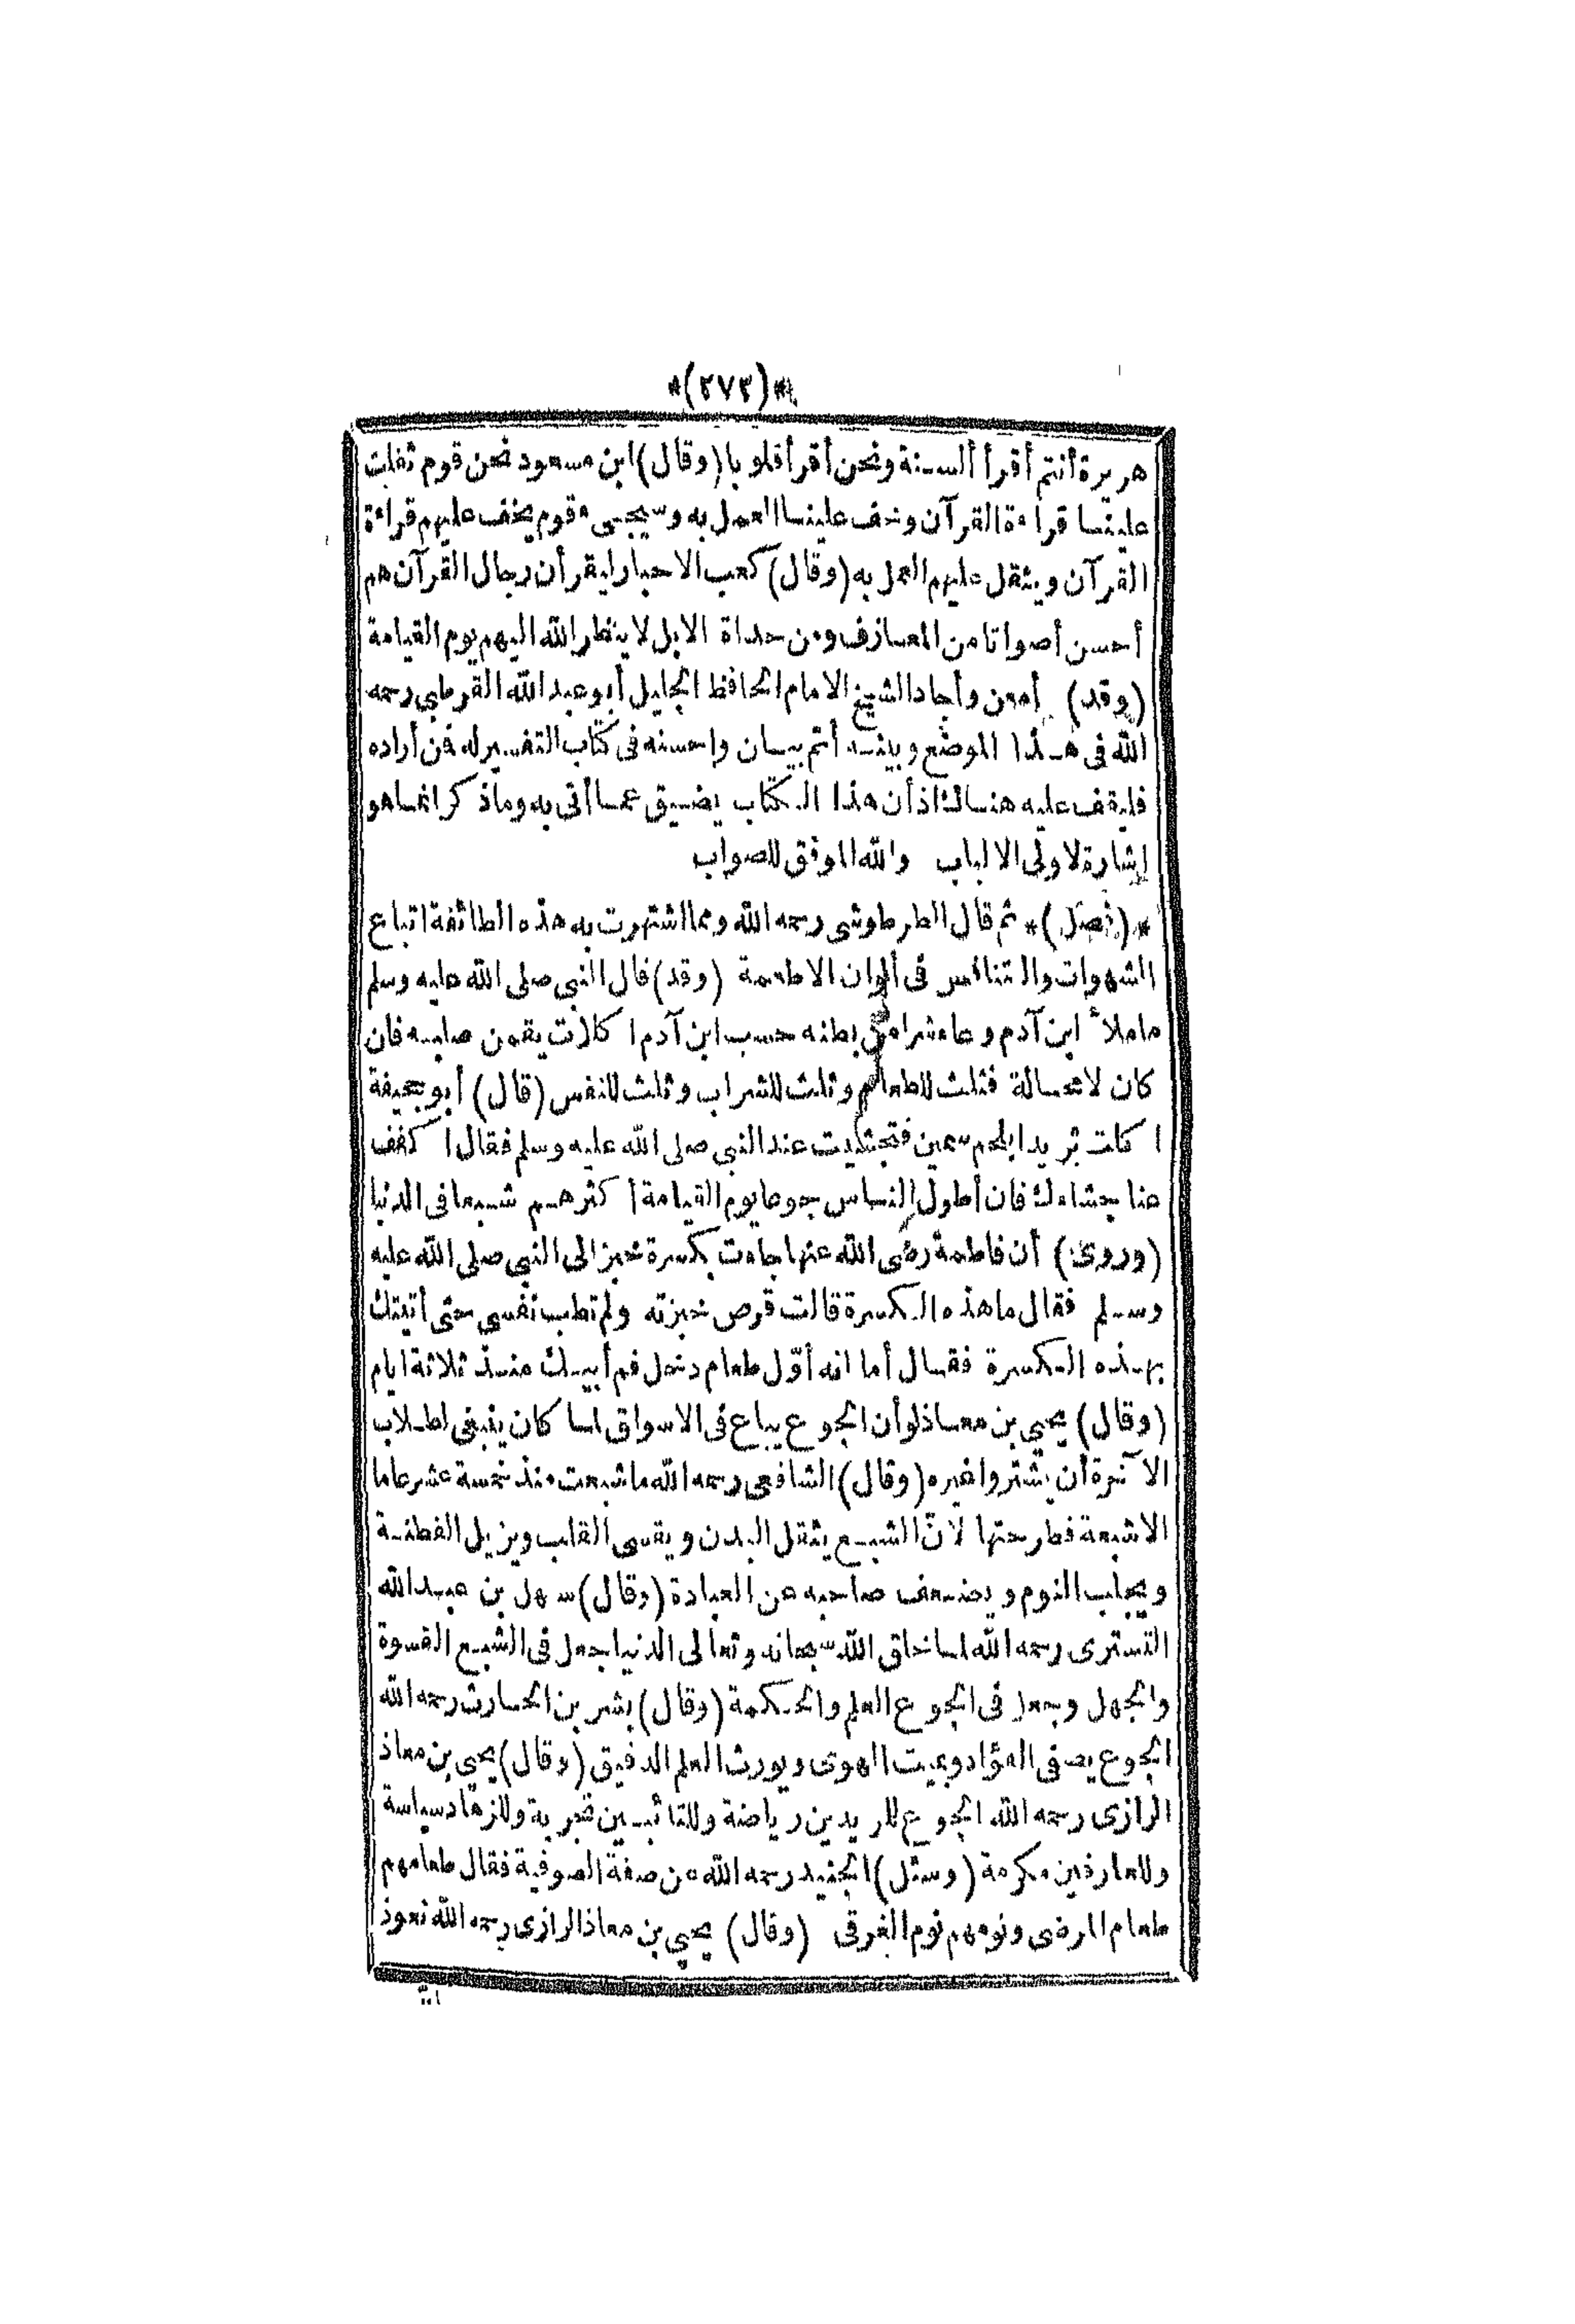 *(٢٧٣)*
هريرة أنتم أقرأ ألسنة ونحن أقرأ قلوبا (وقال) ابن مسعود نحن قوم ثقلت
علينا قراءة القرآن وخف علينا العمل به وسيجىء قوم يخف عليهم قراءة
القرآن ويثقل عليهم العمل به (وقال) كعب الاحبار ليقرأن رجال القرآن هم
أحسن أصواتا من المعازف ومن حداة الابل لا ينظر الله اليهم يوم القيامة
(وقد) أمعن وأجاد الشيخ الامام الحافظ الجليل أبو عبد الله القرطبي رحمه
الله فى هذا الموضع وبينه أتم بيان واحسنه فى كتاب التفسير له فمن أراده
فليقف عليه هنالك اذ أن هذا الكتاب يضيق عما أتى به وما ذكر انما هو
إشارة لاولى الالباب والله الموفق للصواب
*(فصل)* ثم قال الطرطوشى رحمه الله ومما اشتهرت به هذه الطائفة اتباع
الشهوات والتنافس فى ألوان الاطعمة (وقد) قال النبى صلى الله عليه وسلم
ما ملأ ابن آدم وعاء شرا من بطنه حسب ابن آدم اكلات يقمن صلبه فان
كان لا محالة فثلث للطعام وثلث للشراب وثلث للنفس (قال) أبو جحيفة
اكلت ثريدا بلحم سمين فتجشيت عند النبى صلى الله عليه وسلم فقال اكفف
عنا جشاءك فان أطول الناس جوعا يوم القيامة أكثرهم شبعا فى الدنيا
(وروى) أن فاطمة رضى الله عنها جاءت بكسرة خبز الى النبى صلى الله عليه
وسلم فقال ما هذه الكسرة قالت قرص خبزته ولم تطب نفسى حتى أتيتك
بهذه الكسرة فقال أما انه أوّل طعام دخل فم أبيك منذ ثلاثة ايام
(وقال) يحيى بن معاذ لو أن الجوع يباع فى الاسواق لما كان ينبغى لطلاب
الآخرة أن يشتروا غيره (وقال) الشافعى رحمه الله ما شبعت منذ خمسة عشر عاما
الا شبعة فطرحتها لانّ الشبع يثقل البدن ويقسى القلب ويزيل الفطنة
ويجلب النوم ويضعف صاحبه عن العبادة (وقال) سهل بن عبد الله
التسترى رحمه الله لما خلق الله سبحانه وتعالى الدنيا جعل فى الشبع القسوة
والجهل وجعل فى الجوع العلم والحكمة (وقال) بشر بن الحارث رحمه الله
الجوع يصفى الفؤاد ويميت الهوى ويورث العلم الدقيق (وقال) يحيى بن معاذ
الرازى رحمه الله الجوع للمريدين رياضة وللتائبين تجربة وللزهاد سياسة
وللعارفين مكرمة (وسئل) الجنيد رحمه الله عن صفة الصوفية فقال طعامهم
طعام المرضى ونومهم نوم الغرقى (وقال) يحيى بن معاذ الرازى رحمه الله نعوذ